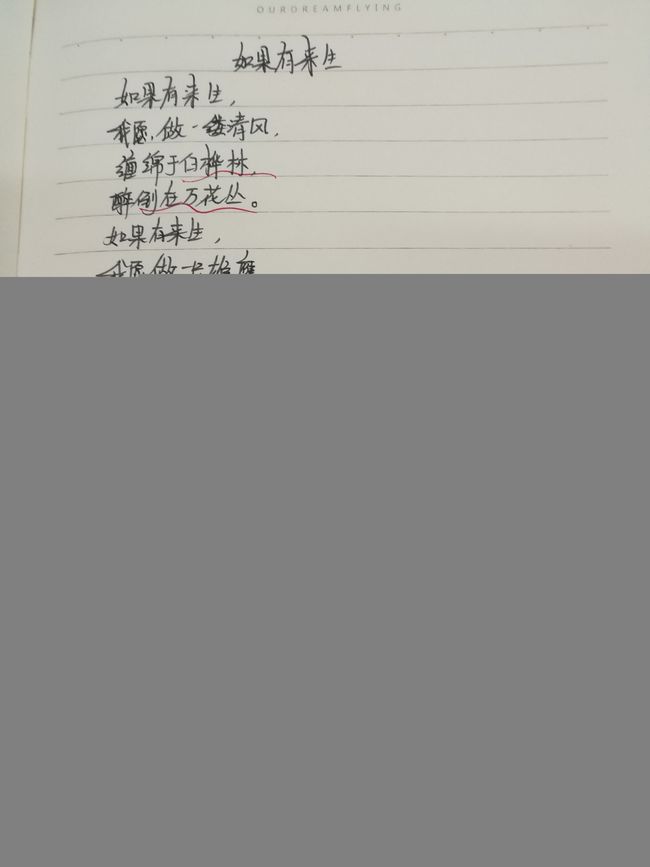 OURDREAMFLYING
如果有来生
如果有来生,
我愿做一缕清风,
缠绵于白桦林,
醉倒在万花丛。
如果有来生,
我愿做一只雄鹰